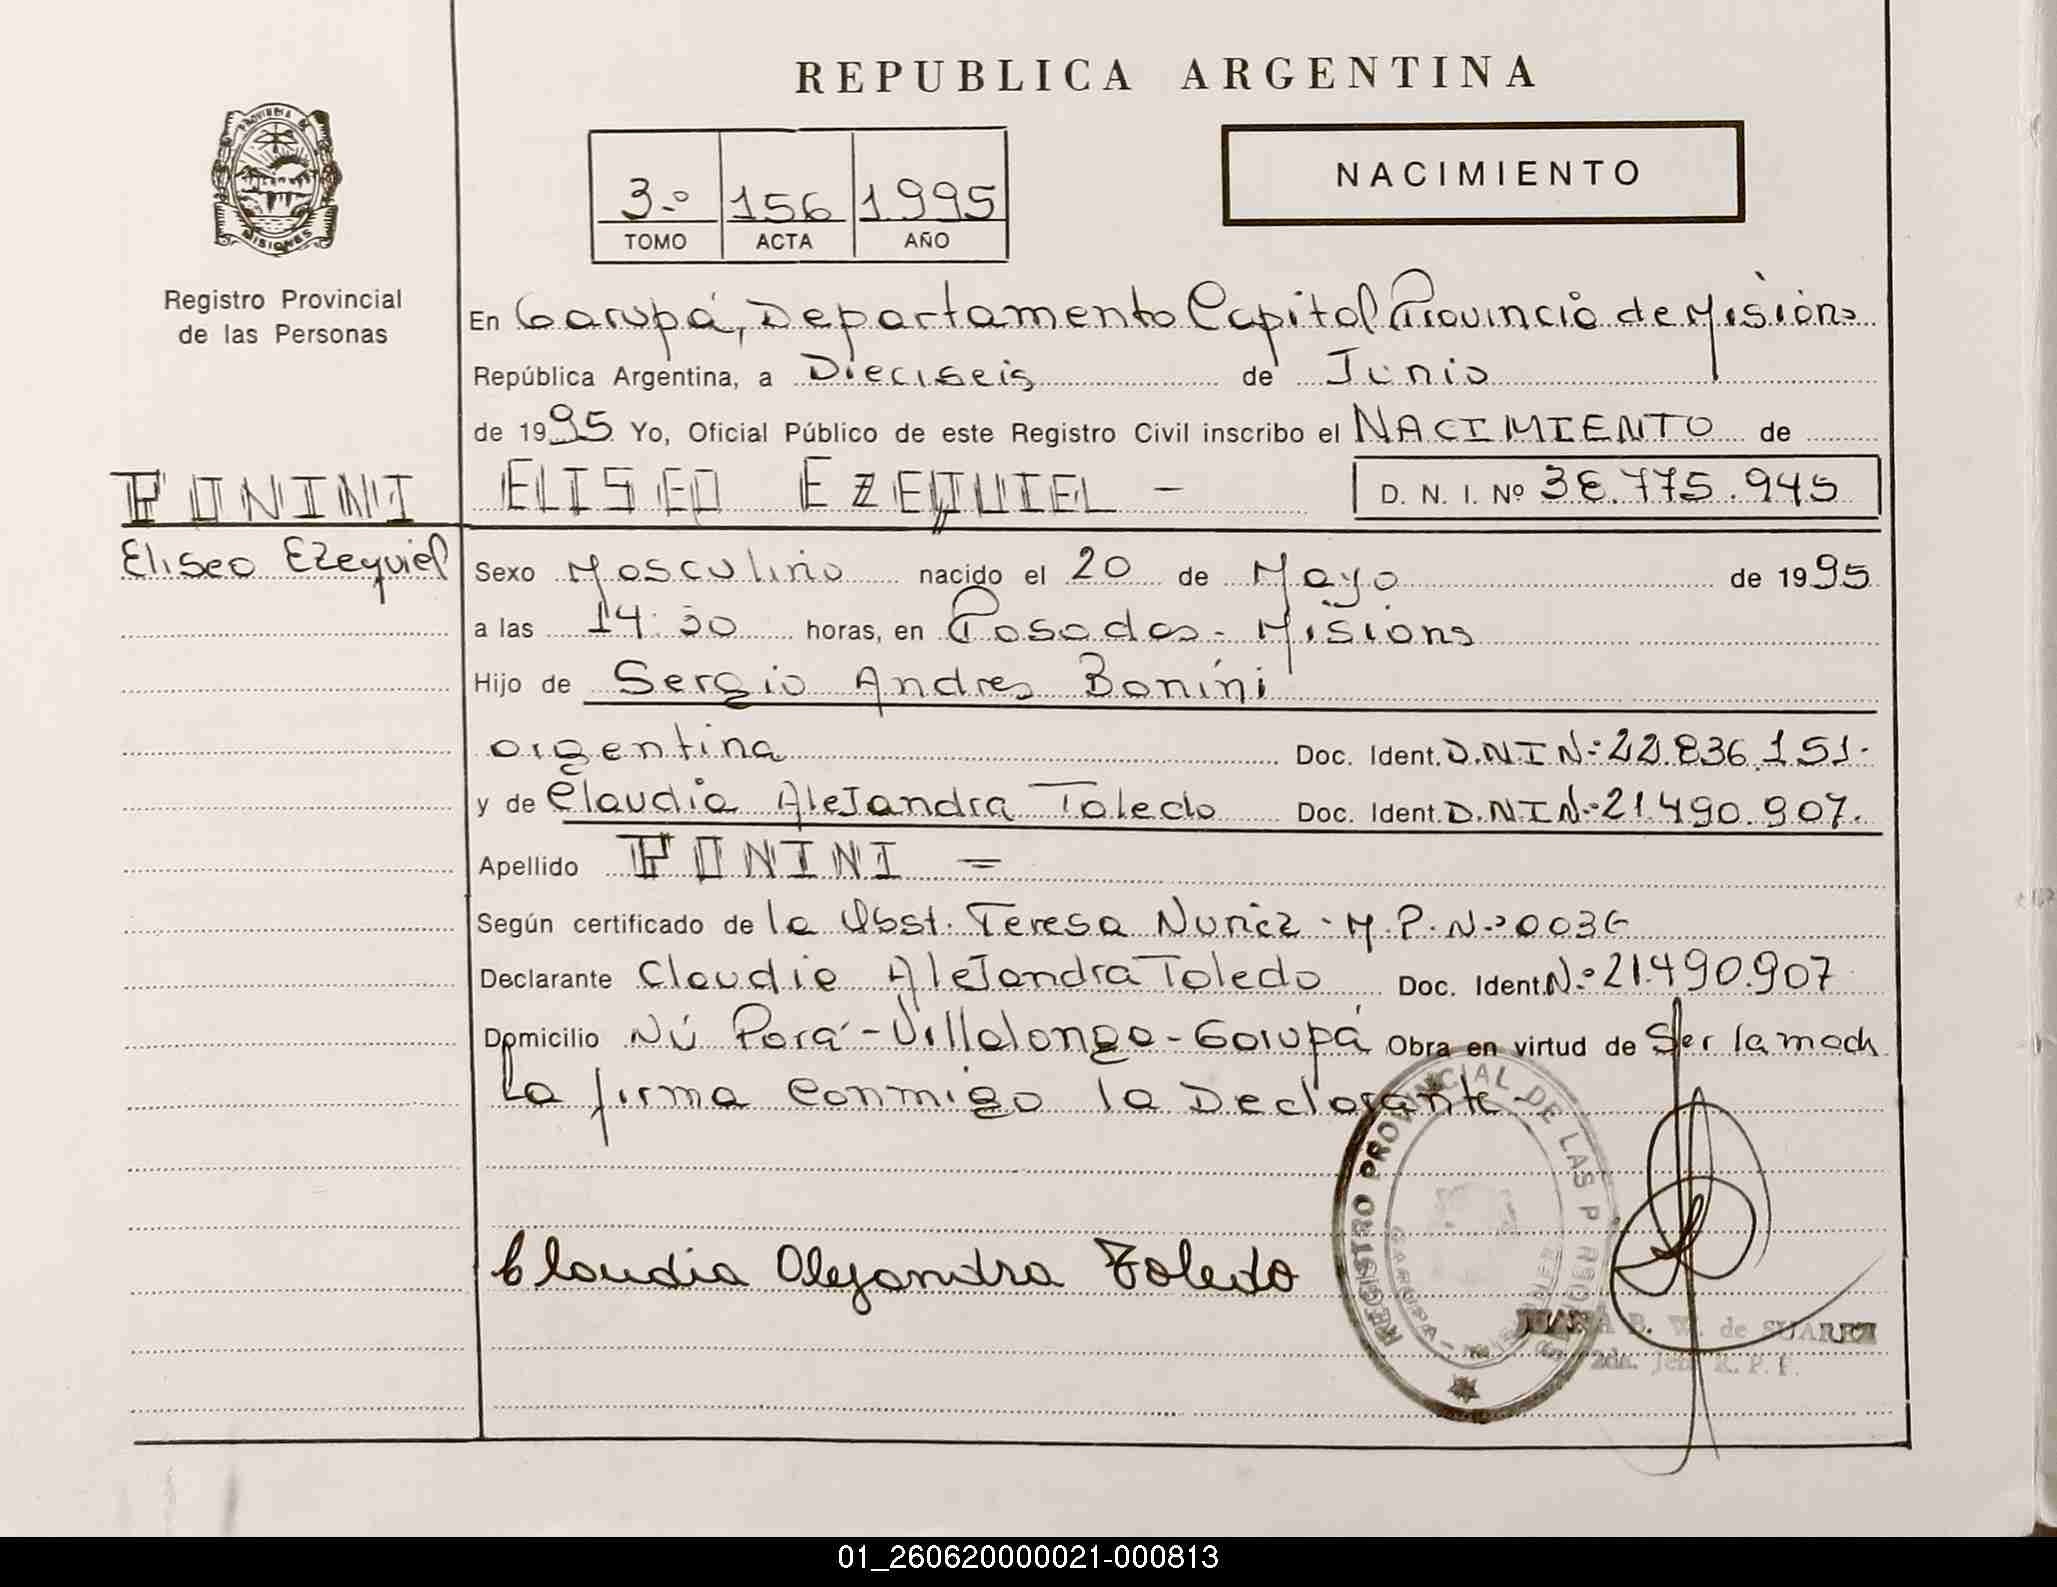 REPUBLICA ARGENTINA
PROVINCIA DE
MISIONES
Registro Provincial
de las Personas
3.º 156 1995
TOMO ACTA AÑO
NACIMIENTO
En Garupá, Departamento Capital Provincia de Misions
República Argentina, a Dieciseis de Junio
de 1995 Yo, Oficial Público de este Registro Civil inscribo el NACIMIENTO de
ELISEO EZEQUIEL - D. N. I. Nº 38.775.945
Eliseo Ezequiel
Sexo Masculino nacido el 20 de Mayo de 1995
a las 14:30 horas, en Posadas - Misions
Hijo de Sergio Andres Bonini
argentina Doc. Ident. D.N.I N.º 22.836.151.
y de Claudia Alejandra Toledo Doc. Ident. D.N.I N.º 21.490.907.
Apellido
Según certificado de la Obst. Teresa Nuñez - M.P.N.º 0036
Declarante Claudia Alejandra Toledo Doc. Ident. N.º 21.490.907
Domicilio Ñú Porá - Villalonga - Garupá Obra en virtud de Ser la madr
La firma conmigo la Declarante -
Claudia Alejandra Toledo
REGISTRO PROVINCIAL DE LAS P
GARUPA - MISIONES
JUANA B. W. de SUAREZ
Jefe R. P. P.
01_260620000021-000813